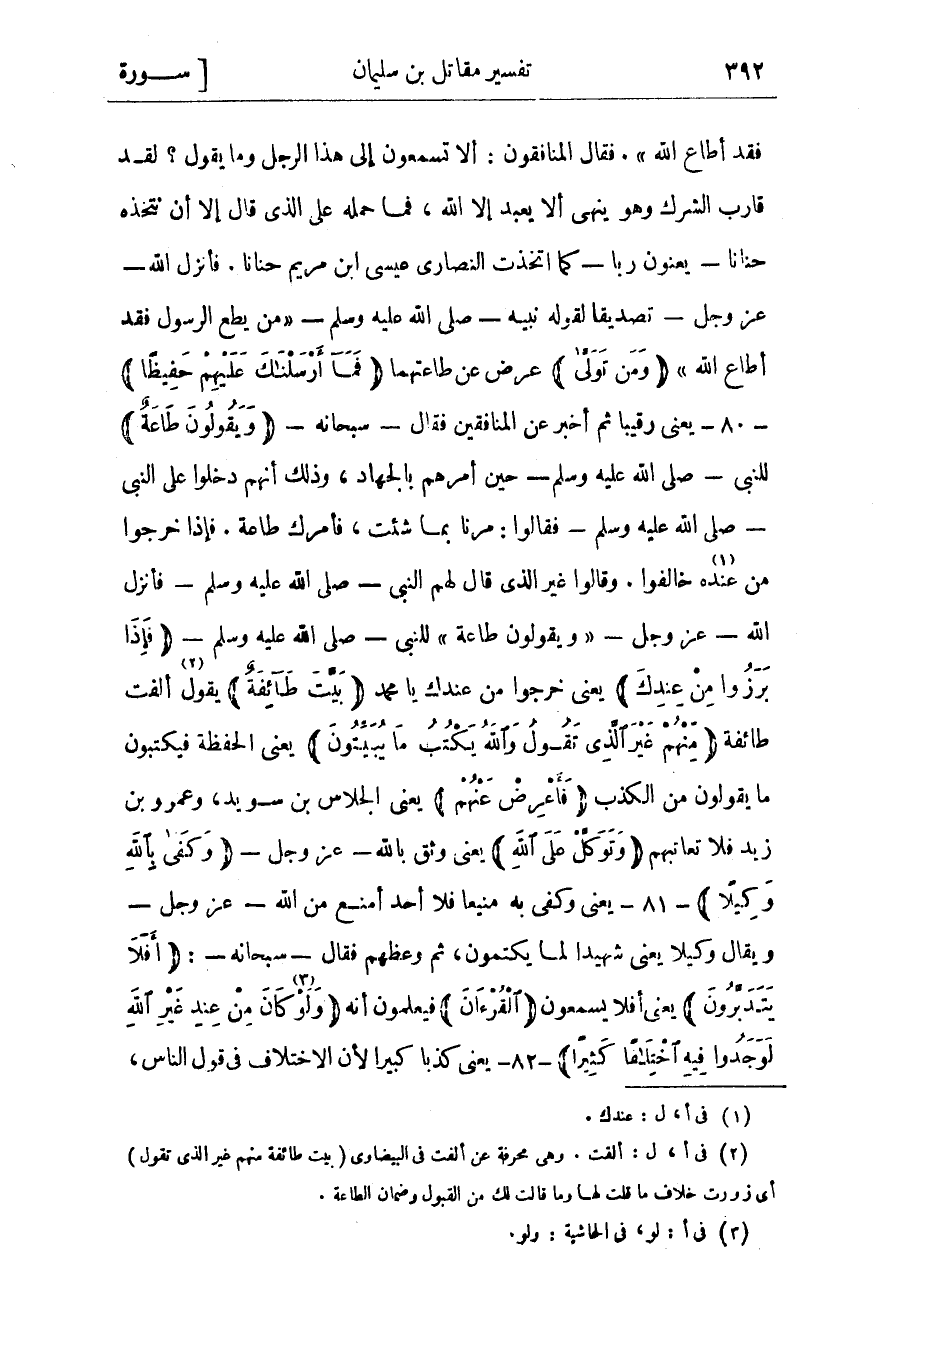 ٣٩٢ تفسير مقاتل بن سليمان [ ســـورة
فقد أطاع الله » . فقال المنافقون : ألا تسمعون إلى هذا الرجل وما يقول ؟ لقـد
قارب الشرك وهو ينهى ألا يعبد إلا الله ، فمـا حمله على الذى قال إلا أن نتخذه
حنانا — يعنون ربا — كما اتخذت النصارى عيسى ابن مريم حنانا . فأنزل الله —
عز وجل — تصديقا لقوله نبيـه — صلى الله عليه وسلم — «من يطع الرسول فقد
أطاع الله » ﴿ وَمَن تَوَلَّىٰ ﴾ عرض عن طاعتهما ﴿ فَمَآ أَرْسَلْنَٰكَ عَلَيْهِمْ حَفِيظًا ﴾
— ٨٠ — يعنى رقيبا ثم أخبر عن المنافقين فقال — سبحانه — ﴿ وَيَقُولُونَ طَاعَةٌ ﴾
للنبى — صلى الله عليه وسلم — حين أمرهم بالجهاد ، وذلك أنهم دخلوا على النبى
— صلى الله عليه وسلم — فقالوا : مرنا بمـا شئت ، فأمرك طاعة . فإذا خرجوا
من عنده (١) خالفوا . وقالوا غير الذى قال لهم النبي — صلى الله عليه وسلم — فأنزل
الله — عز وجل — « ويقولون طاعة » للنبى — صلى الله عليه وسلم — ﴿ فَإِذَا
بَرَزُوا مِنْ عِندِكَ ﴾ يعنى خرجوا من عندك يا محمد ﴿ بَيَّتَ طَآئِفَةٌ ﴾ يقول ألفت (٢)
طائفة ﴿ مِّنْهُمْ غَيْرَ ٱلَّذِى تَقُولُ وَٱللَّهُ يَكْتُبُ مَا يُبَيِّتُونَ ﴾ يعنى الحفظة فيكتبون
ما يقولون من الكذب ﴿ فَأَعْرِضْ عَنْهُمْ ﴾ يعنى الجلاس بن سـويد، وعمرو بن
زيد فلا تعاتبهم ﴿ وَتَوَكَّلْ عَلَى ٱللَّهِ ﴾ يعنى وثق بالله — عز وجل — ﴿ وَكَفَىٰ بِٱللَّهِ
وَكِيلًا ﴾ — ٨١ — يعنى وكفى به منيعا فلا أحد أمنـع من الله — عز وجل —
ويقال وكيلا يعنى شهيدا لمـا يكتمون، ثم وعظهم فقال — سبحانه — : ﴿ أَفَلَا
يَتَدَبَّرُونَ ﴾ يعنى أفلا يسمعون ﴿ ٱلْقُرْءَانَ ﴾ فيعلمون أنه ﴿ وَلَوْ (٣) كَانَ مِنْ عِندِ غَيْرِ ٱللَّهِ
لَوَجَدُوا فِيهِ ٱخْتِلَٰفًا كَثِيرًا ﴾ —٨٢— يعنى كذبا كبيرا لأن الاختلاف فى قول الناس ،
(١) فى أ ، ل : عندك .
(٢) فى أ ، ل : ألقت . وهى محرفة عن ألفت فى البيضاوى ( بيت طائفة منهم غير الذى تقول )
أى زورت خلاف ما قلت لهـا وما قالت لك من القبول وضمان الطاعة .
(٣) فى أ : لو ، فى الحاشية : ولو.